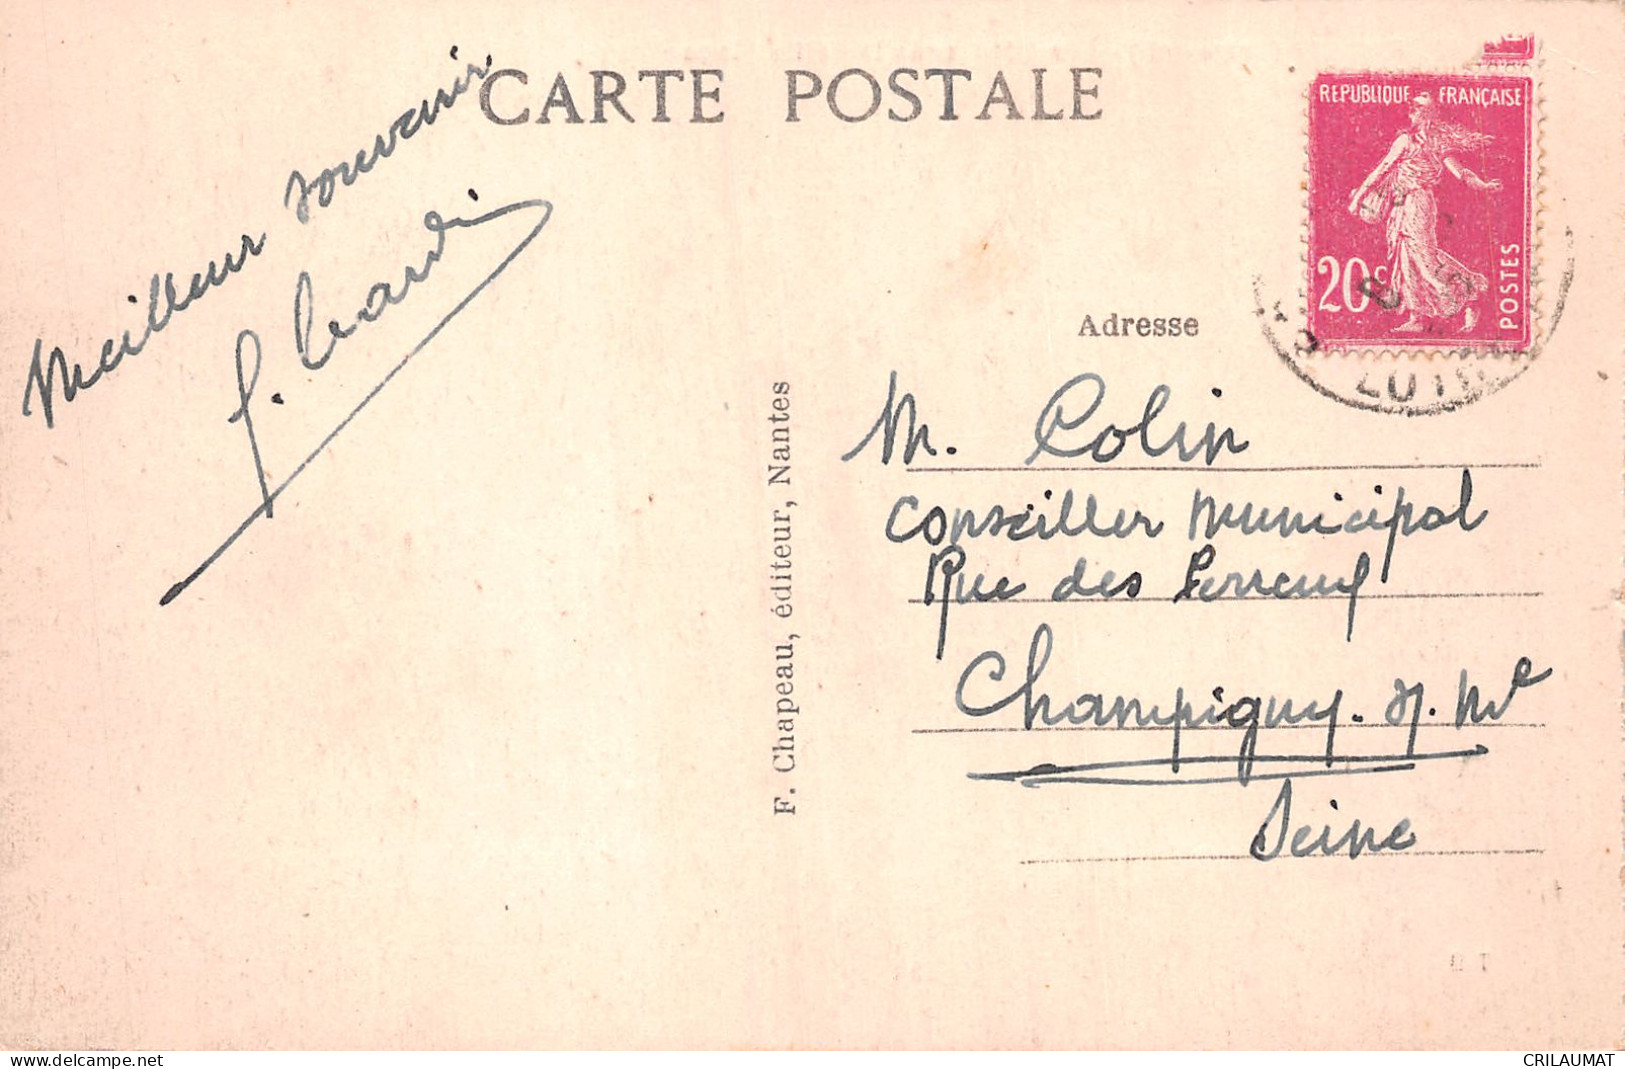 CARTE POSTALE
Meilleur souvenir
REPUBLIQUE FRANÇAISE
20c
POSTES
Adresse
M. Colin
Conseiller Municipal
Rue des Perreux
Champigny. s. Mne
Seine
F. Chapeau, éditeur, Nantes
delcampe.net
CRILAUMAT